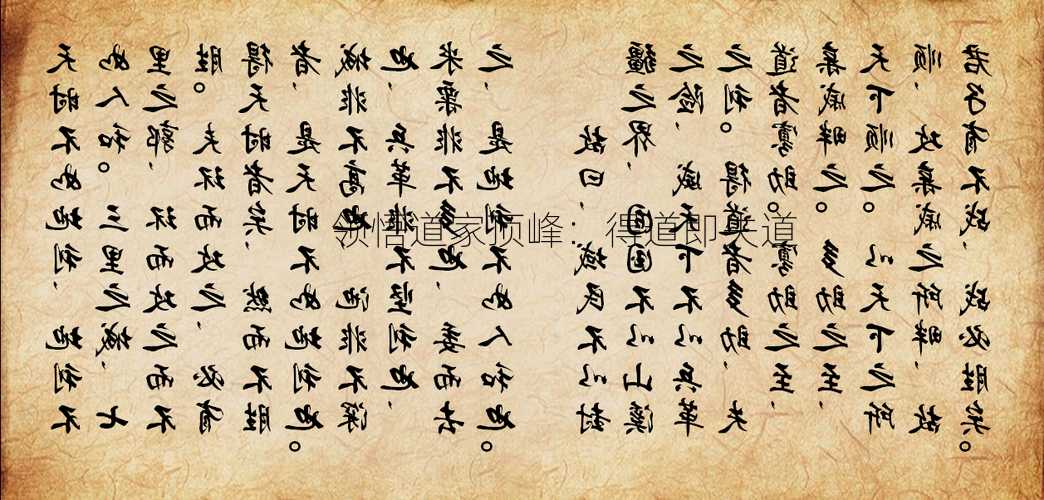 天时不如地利,地利不
如人和。三里之城,七
里之郭,环而攻之而不
胜。夫环而攻之,必有
得天时者矣,然而不胜
者,是天时不如地利也。
城非不高也,池非不深
也,兵革非不坚利也,
米粟非不多也,委而去
之,是地利不如人和也。
故曰,域民不以封
疆之界,固国不以山溪
之险,威天下不以兵革
之利。得道者多助,失
道者寡助。寡助之至,
亲戚畔之。多助之至,
天下顺之。以天下之所
顺,攻亲戚之所畔,故
君子有不战,战必胜矣。
领悟道家顶峰：得道即道